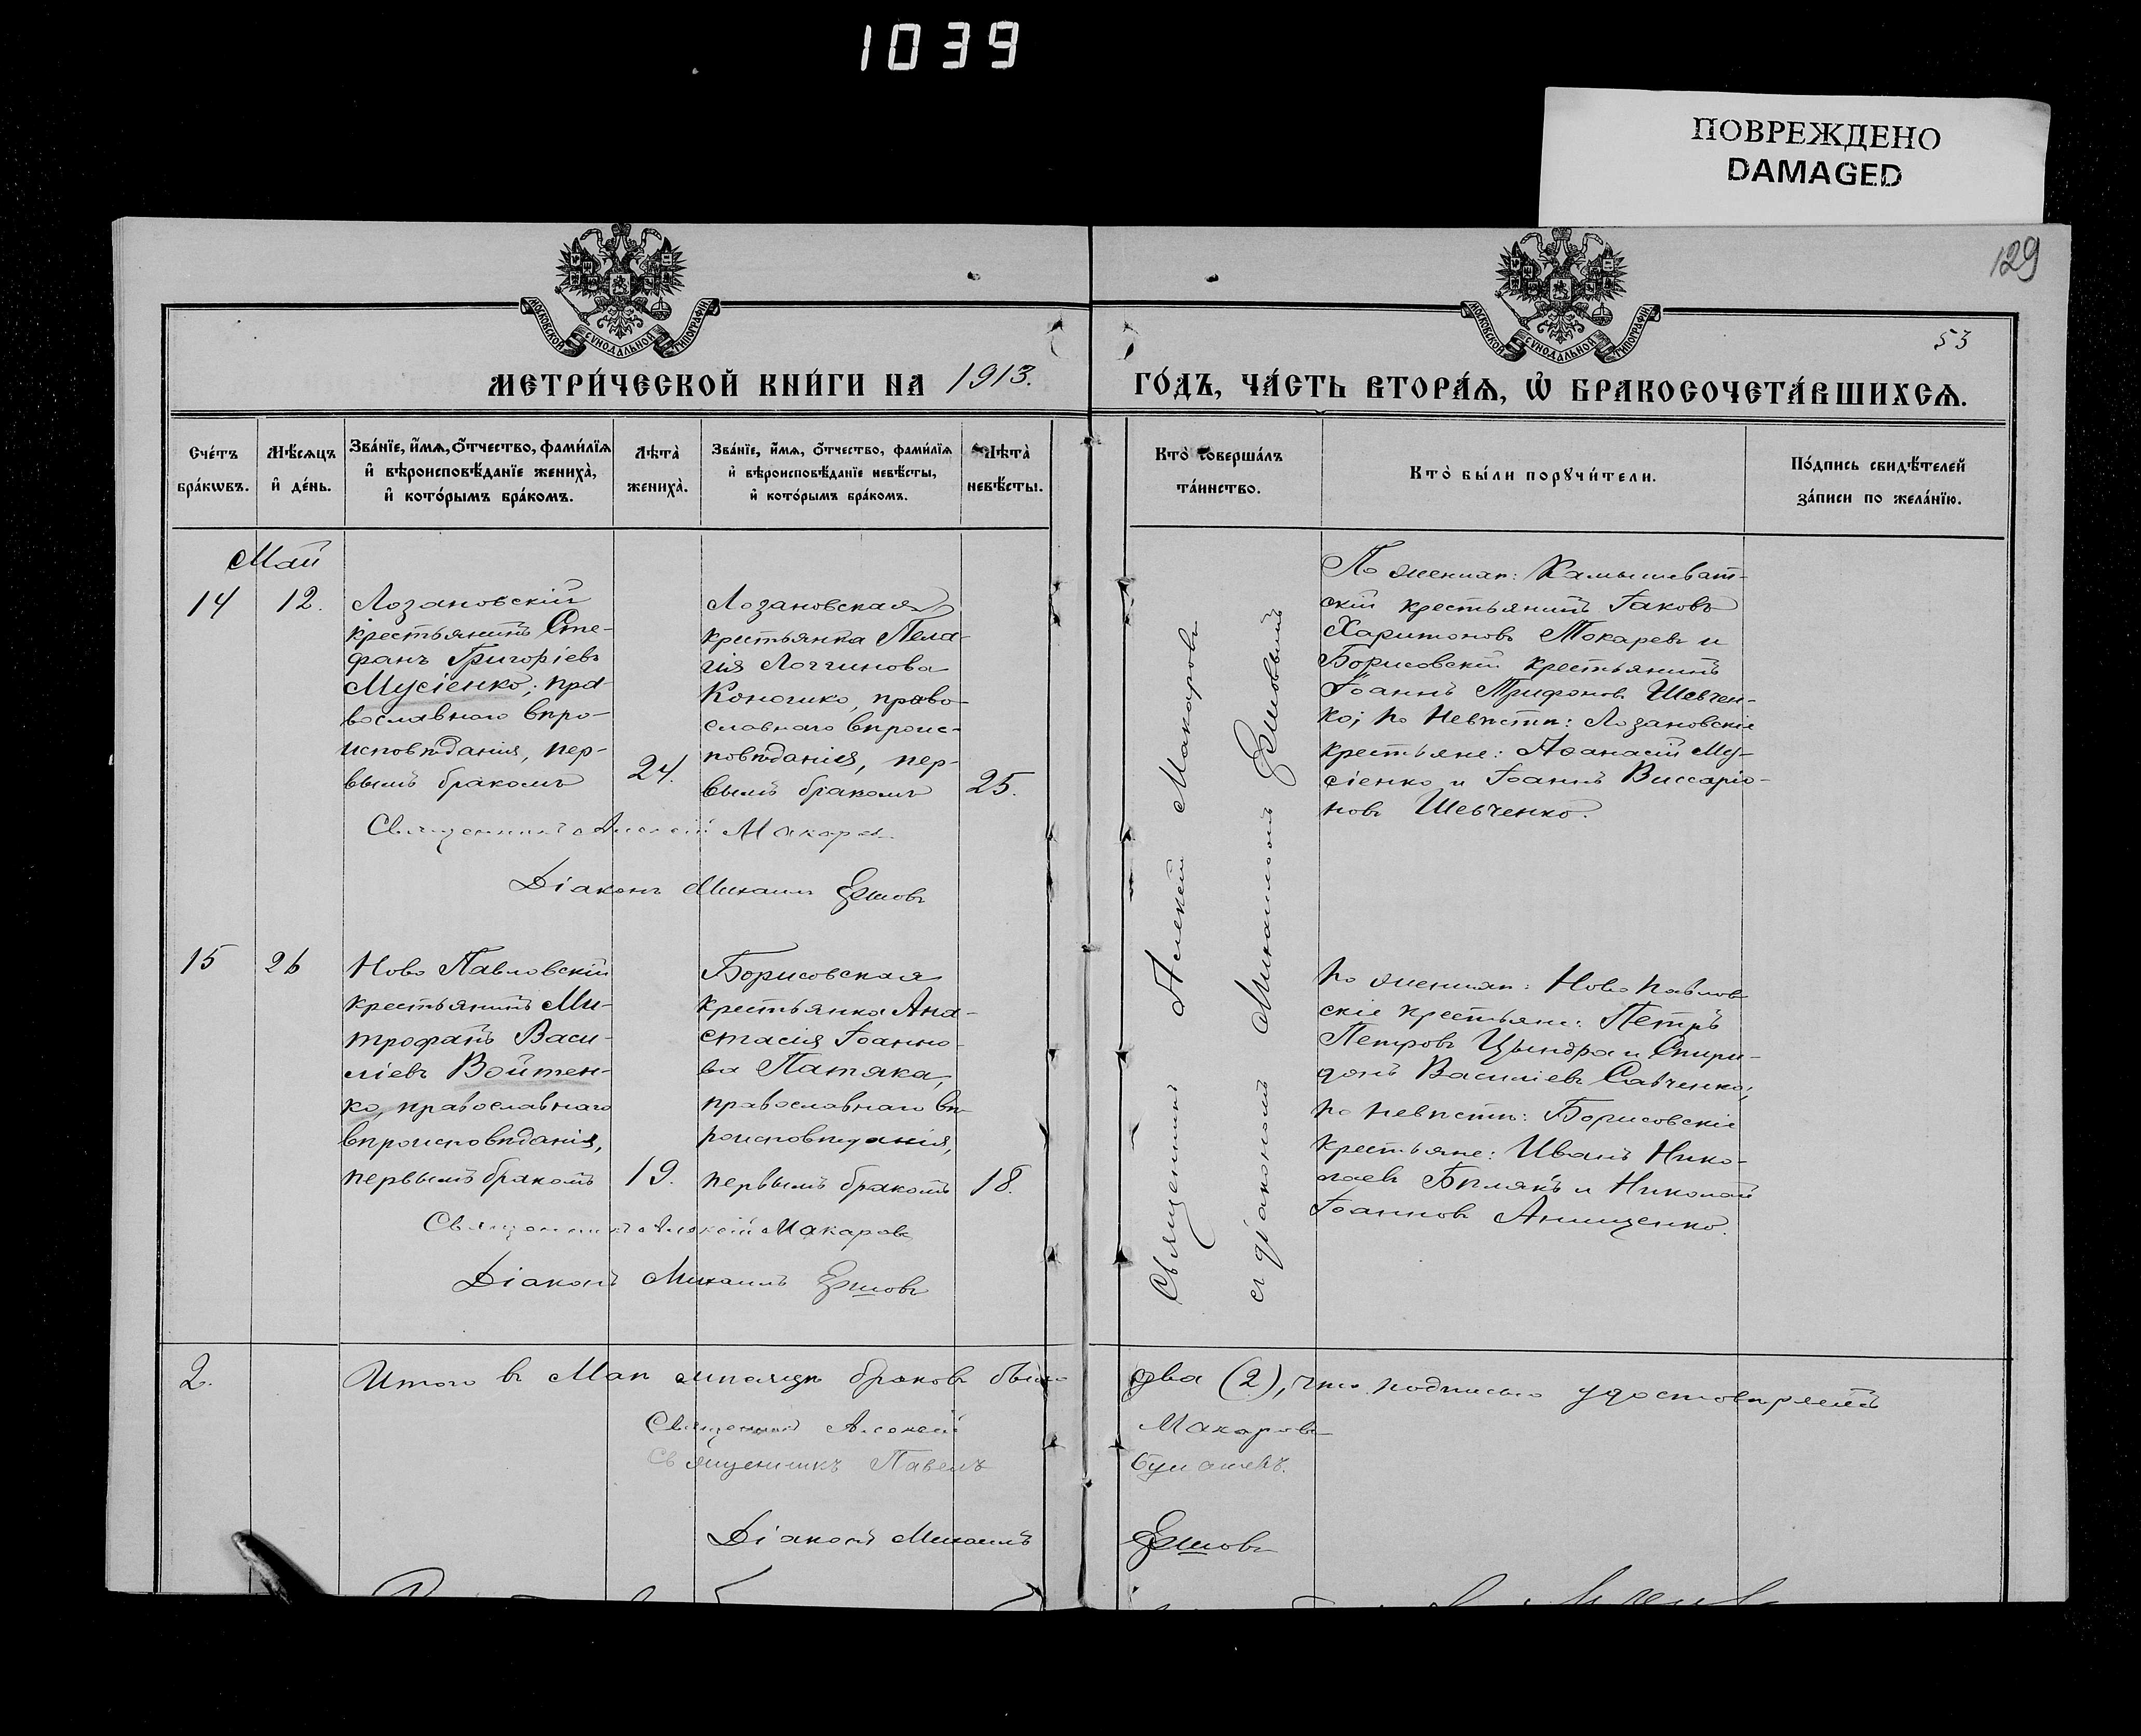 1039
ПОВРЕЖДЕНО
DAMAGED
129
53
МОСКОВСКОЙ СѴНОДАЛЬНОЙ ТИПОГРАФІИ
МОСКОВСКОЙ СѴНОДАЛЬНОЙ ТИПОГРАФІИ
МЕТРИ́ЧЕСКОЙ КНИ́ГИ НА 1913.
ГО́ДЪ, ЧА́СТЬ ВТОРА́Ѧ, Ѽ БРАКОСОЧЕТА́ВШИХСѦ.
Сче́тъ
бра́кѡвъ.
Мѣ́сѧцъ
и҆ де́нь.
Зва́нїе, и҆́мѧ, ѻ҆́тчество, фами́лїѧ
и҆ вѣроисповѣ́данїе жениха̀,
и҆ кото́рымъ бра́комъ.
Лѣта̀
жениха̀.
Зва́нїе, и҆́мѧ, ѻ҆́тчество, фами́лїѧ
и҆ вѣроисповѣ́данїе невѣ́сты,
и҆ кото́рымъ бра́комъ.
Лѣта̀
невѣ́сты.
Кто̀ соверша́лъ
та́инство.
Кто̀ бы́ли порꙋчи́тели.
По́дпись свидѣ́телей
за́писи по жела́нїю.
Май
14
12.
Лозановскій
крестьянинъ Сте-
фанъ Григоріевъ
Мусіенко; пра-
вославнаго вѣро-
исповѣданія, пер-
вымъ бракомъ
24.
Лозановская
крестьянка Пела-
гія Логгинова
Кононко, право-
славнаго вѣроис-
повѣданія, пер-
вымъ бракомъ
25.
Священникъ Алексій Макаровъ
Діаконъ Михаилъ Ершовъ
Священникъ Алексій Макаровъ
съ діакономъ Михаиломъ Ершовымъ
По женихѣ: Камышеват-
скій крестьянинъ Іаковъ
Харитоновъ Токаревъ и
Борисовскій крестьянинъ
Іоаннъ Трифоновъ Шевчен-
ко; по невѣстѣ: Лозановскіе
крестьяне: Аѳанасій Му-
сіенко и Іоаннъ Виссаріо-
новъ Шевченко.
15
26
Ново Павловскій
крестьянинъ Ми-
трофанъ Васи-
ліевъ Войтен-
ко, православнаго
вѣроисповѣданія,
первымъ бракомъ
19.
Борисовская
крестьянка Ана-
стасія Іоанно-
ва Патяка,
православнаго вѣ-
роисповѣданія,
первымъ бракомъ
18.
Священникъ Алексій Макаровъ
Діаконъ Михаилъ Ершовъ
по женихѣ: Ново Павлов-
скіе крестьяне: Петръ
Петровъ Цындра и Спири-
донъ Василіевъ Савченко;
по невѣстѣ: Борисовскіе
крестьяне: Иванъ Нико-
лаевъ Бѣлякъ и Николай
Іоанновъ Анищенко.
2.
Итого въ Маѣ мѣсяцѣ браковъ было два (2), что подписью удостовѣряемъ
Священникъ Алексій Макаровъ
Священникъ Павелъ
Діаконъ Михаилъ Ершовъ